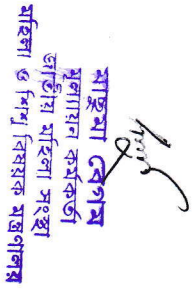 মাহমুদা বেগম
মূল্যায়ন কর্মকর্তা
জাতীয় মহিলা সংস্থা
মহিলা ও শিশু বিষয়ক মন্ত্রণালয়